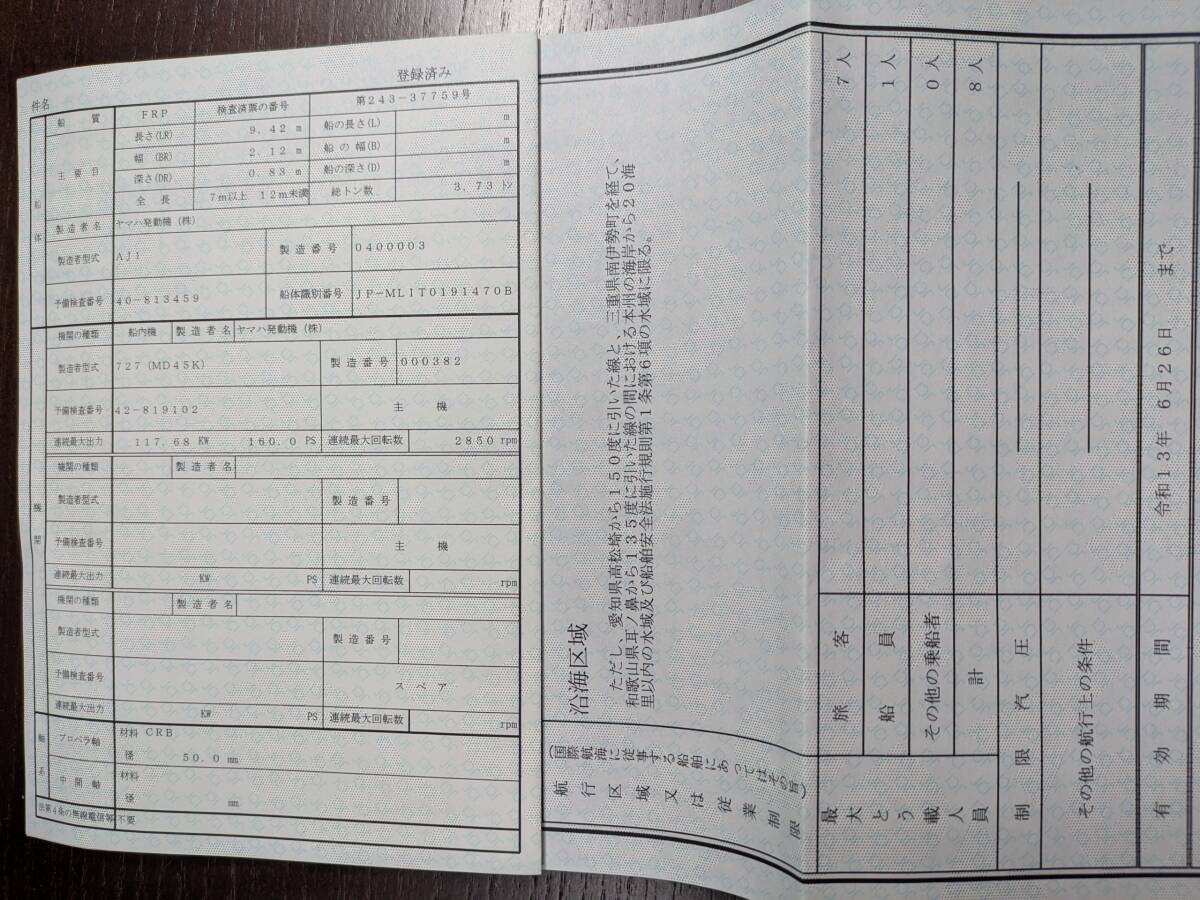 登録済み
件名
船体
船質 FRP 検査済票の番号 第243-37759号
主要目 長さ(LR) 9.42 m 船の長さ(L) m
幅 (BR) 2.12 m 船の幅(B) m
深さ(DR) 0.83 m 船の深さ(D) m
全長 7m以上 12m未満 総トン数 3.73 トン
製造者名 ヤマハ発動機(株)
製造者型式 AJ1 製造番号 0400003
予備検査番号 40-813459 船体識別番号 JP-MLIT0191470B
機関
機関の種類 船内機 製造者名 ヤマハ発動機(株)
製造者型式 727(MD45K) 製造番号 000382
予備検査番号 42-819102 主機
連続最大出力 117.68 KW 160.0 PS 連続最大回転数 2850 rpm
機関の種類 製造者名
製造者型式 製造番号
予備検査番号 主機
連続最大出力 KW PS 連続最大回転数 rpm
機関の種類 製造者名
製造者型式 製造番号
予備検査番号 スペア
連続最大出力 KW PS 連続最大回転数 rpm
軸系
プロペラ軸 材料 CRB
径 50.0 mm
中間軸 材料
径 mm
法第4条の無線電信等 不要
航行区域又は従業制限
(国際航海に従事する船舶にあってはその旨)
沿海区域
ただし、愛知県高松埼から150度に引いた線と、三重県南伊勢町を経て、
和歌山県耳ノ鼻から135度に引いた線の間における本州の海岸から20海
里以内の水域及び船舶安全法施行規則第1条第6項の水域に限る。
最大とう載人員
旅客 7人
船員 1人
その他の乗船者 0人
計 8人
制限汽圧
その他の航行上の条件
有効期間 令和13年 6月26日 まで